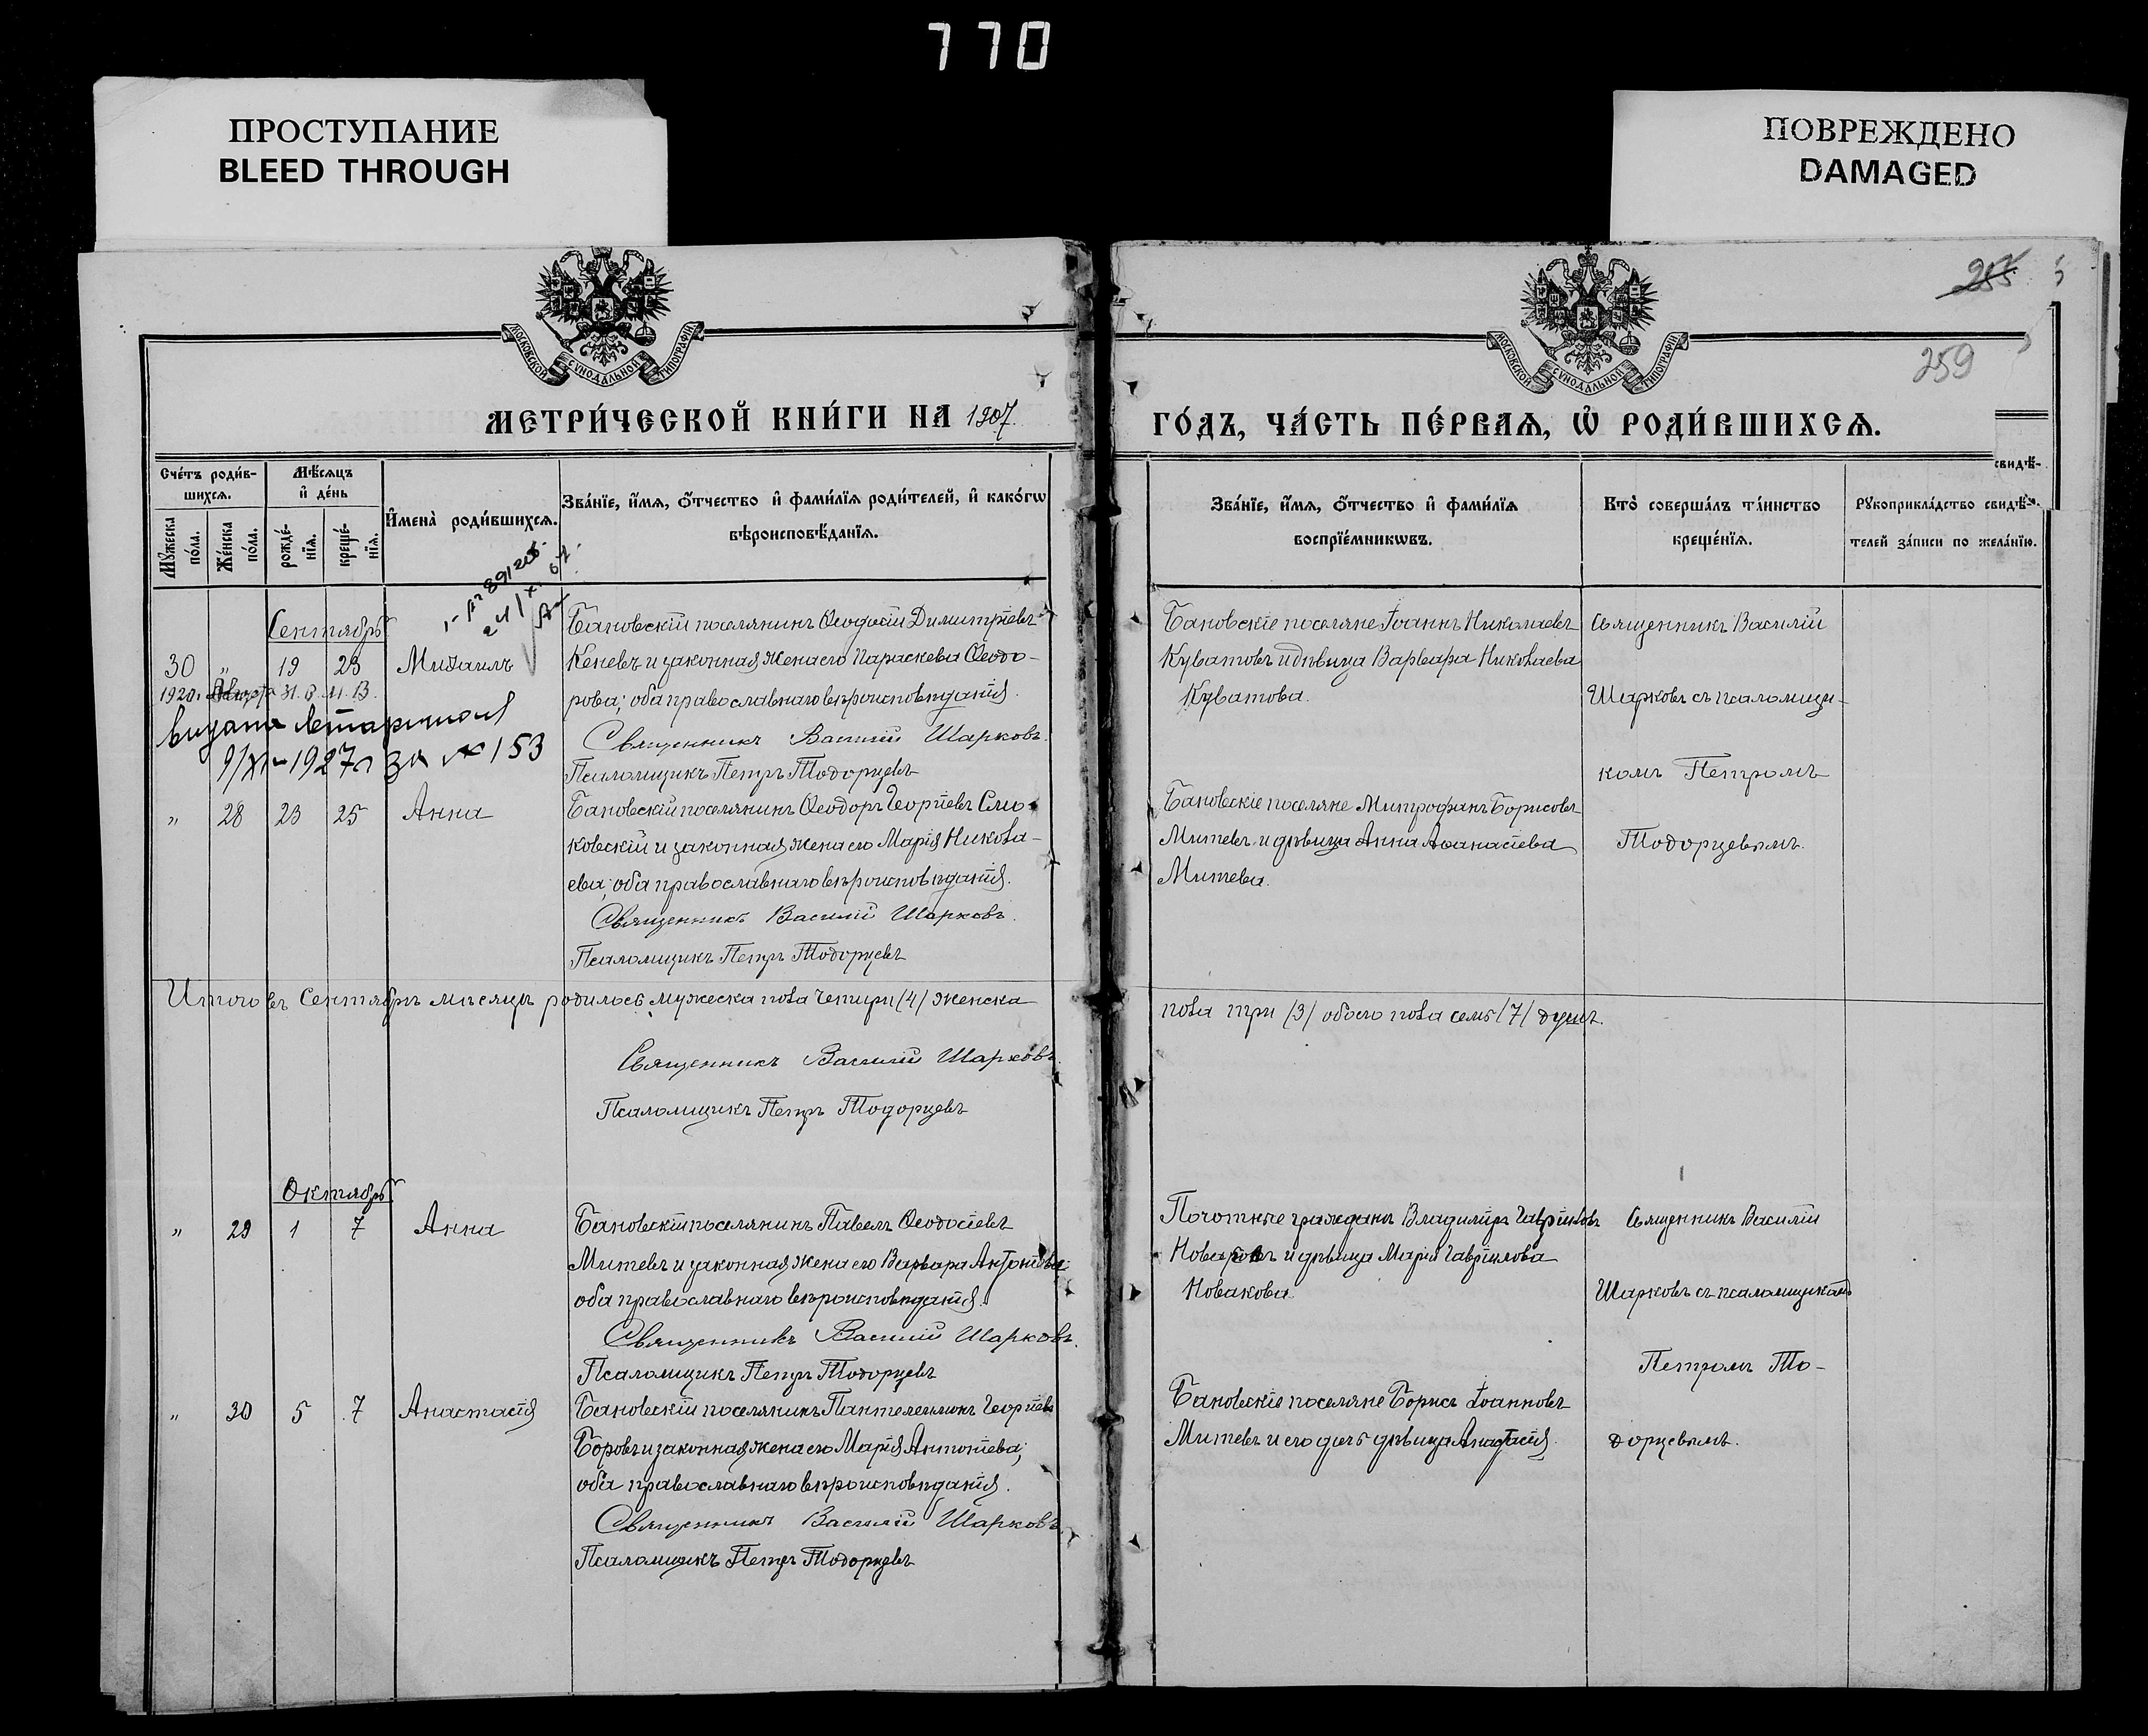 770
ПРОСТУПАНИЕ
BLEED THROUGH
ПОВРЕЖДЕНО
DAMAGED
255
259
МОСКОВСКОЙ СѴНОДАЛЬНОЙ ТИПОГРАФІИ
МОСКОВСКОЙ СѴНОДАЛЬНОЙ ТИПОГРАФІИ
МЕТРИ́ЧЕСКОЙ КНИ́ГИ НА 1907.
ГО́ДЪ, ЧА́СТЬ ПЕ́РВАѦ, Ѽ РОДИ́ВШИХСѦ.
Сче́тъ роди́в-
шихсѧ.
Мѣ́сѧцъ
и҆ де́нь
Мꙋжеска по́ла.
Же́нска по́ла.
рожде́-
нїѧ.
креще́-
нїѧ.
И҆мена̀ роди́вшихсѧ.
Зва́нїе, и҆́мѧ, ѻ҆́тчество и҆ фами́лїѧ роди́телей, и҆ како́гѡ
вѣроисповѣ́данїѧ.
Зва́нїе, и҆́мѧ, ѻ҆́тчество и҆ фами́лїѧ
воспрїе́мникѡвъ.
Кто̀ соверша́лъ та́инство
креще́нїѧ.
свидѣ́-
Рꙋкоприкла́дство свидѣ́-
телей за́писи по жела́нїю.
Сентябрь
30 " 19 23 Михаилъ
Бановскій поселянинъ Ѳеодосій Димитріевъ
Кеневъ и законная жена его Параскева Ѳеодо-
рова; оба православнаго вѣроисповѣданія.
Священникъ Василій Шарковъ.
Псаломщикъ Петръ Тодорцевъ
Бановскіе поселяне Іоаннъ Николаевъ
Куватовъ и дѣвица Варвара Николаева
Куватова.
Священникъ Василій
Шарковъ съ псаломщи-
комъ Петромъ
Тодорцевымъ.
1920г.
9/XI-1927г за № 153
" 28 23 25 Анна
Бановскій поселянинъ Ѳеодоръ Георгіевъ Смо-
ковскій и законная жена его Марія Никола-
ева; оба православнаго вѣроисповѣданія.
Священникъ Василій Шарковъ.
Псаломщикъ Петръ Тодорцевъ
Бановскіе поселяне Митрофанъ Борисовъ
Митевъ и дѣвица Анна Аѳанасіева
Митева.
Итого въ Сентябрѣ мѣсяцѣ родилось мужеска пола четыри /4/ женска
пола три /3/ обоего пола семь /7/ душъ.
Священникъ Василій Шарковъ.
Псаломщикъ Петръ Тодорцевъ
Октябрь
" 29 1 7 Анна
Бановскій поселянинъ Павелъ Ѳеодосіевъ
Митевъ и законная жена его Варвара Антоніева;
оба православнаго вѣроисповѣданія.
Священникъ Василій Шарковъ.
Псаломщикъ Петръ Тодорцевъ
Почотные граждане Владиміръ Гавріиловъ
и дѣвица Марія Гавріилова
Новакова
Священникъ Василій
Шарковъ съ псаломщикомъ
Петромъ То-
дорцевымъ.
" 30 5 7 Анастасія
Бановскій поселянинъ Пантелеимонъ Георгіевъ
Боровъ и законная жена его Марія Антоніева;
оба православнаго вѣроисповѣданія.
Священникъ Василій Шарковъ
Псаломщикъ Петръ Тодорцевъ
Бановскіе поселяне Борисъ Іоанновъ
Митевъ и его дочь дѣвица Анастасія.